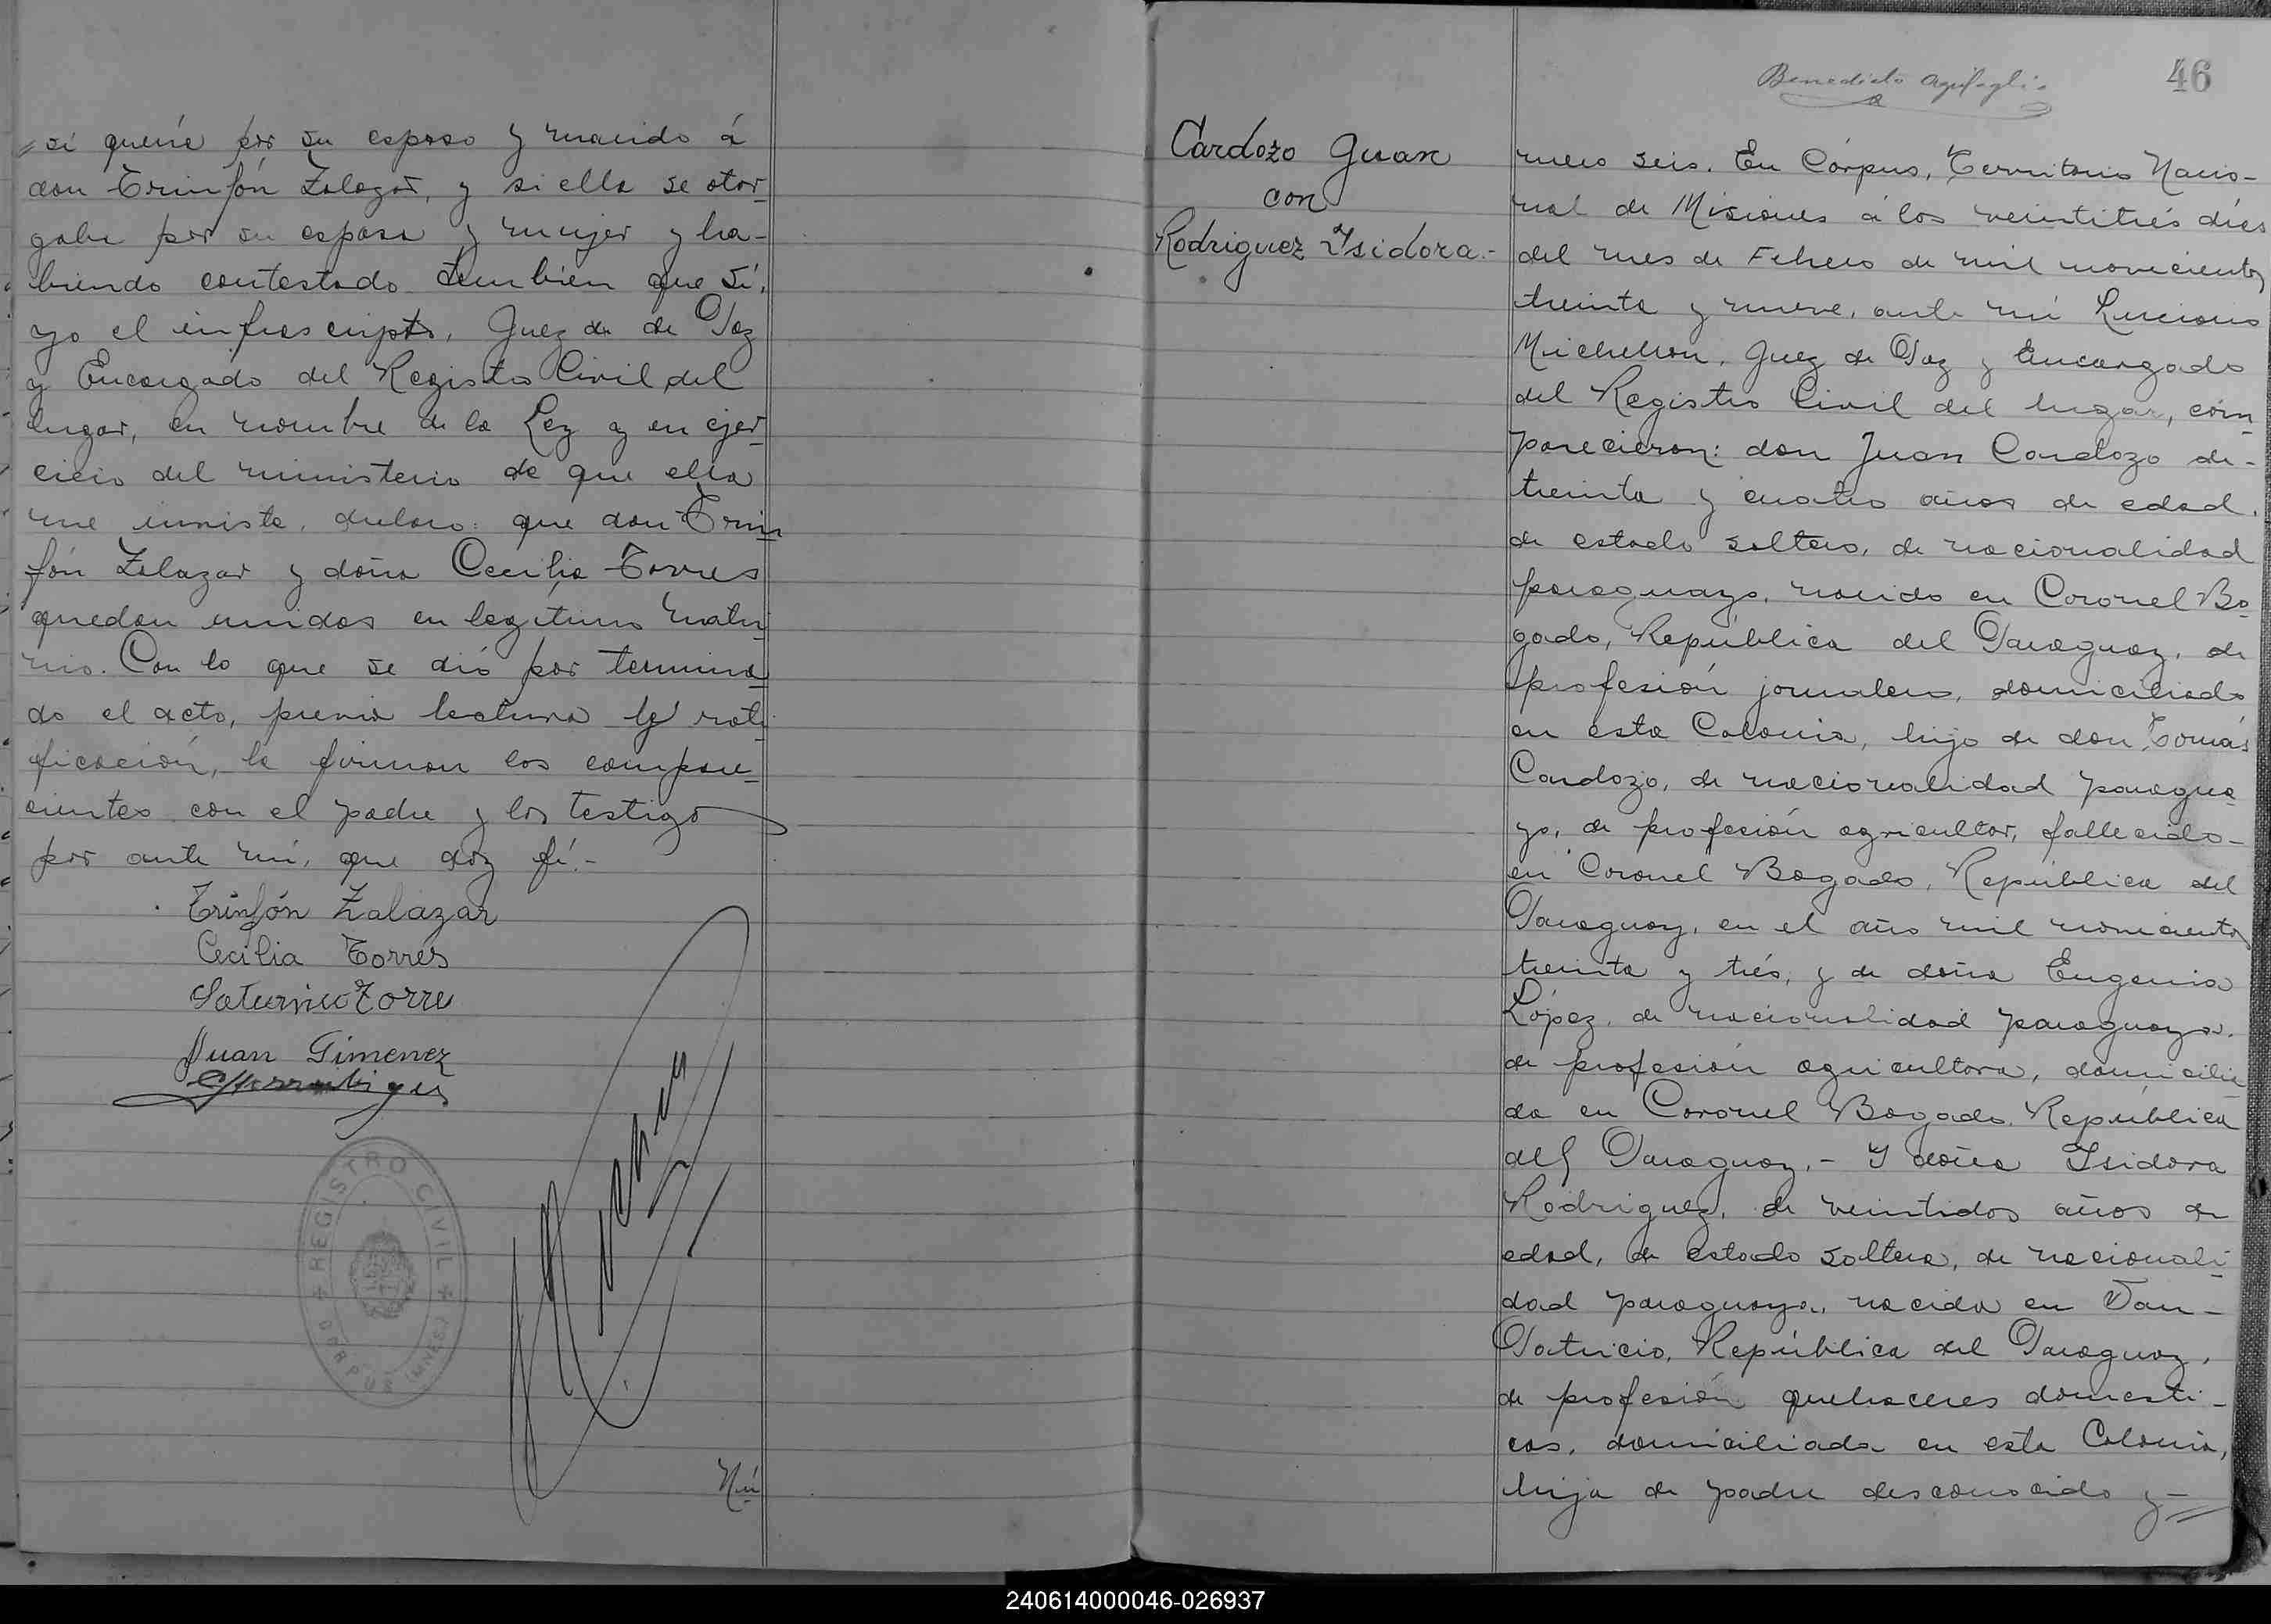 si quería por su esposo y marido á
don Trinfón Zalazar, y si ella se otor-
gaba por su esposa y mujer y ha-
biendo contestado tambien que sí,
yo el infrascripto, Juez de de Paz
y Encargado del Registro Civil del
lugar, en nombre de la Ley y en ejer-
cicio del ministerio de que ella
me inviste, declaro: que don Trin-
fón Zalazar y doña Cecilia Torres
quedan unidos en legítimo matri-
nio. Con lo que se dió por termina-
do el acto, previa lectura y rati-
ficación, la firman los compare-
cientes con el padre y los testigo
por ante mí, que doy fé.-
Trinfón Zalazar
Cecilia Torres
Saturnino Torre
Juan Gimenez
REGISTRO CIVIL
CORPUS (MNES.)
Nú
46
Benedicto
Cardozo Juan
con
Rodriguez Isidora.-
mero seis. En Córpus, Territorio Nacio-
nal de Misiones á los veintitrés días
del mes de Febrero de mil novecientos
treinta y nueve, ante mí Luciano
Michellon, Juez de Paz y Encargado
del Registro Civil del lugar, com-
parecieron: don Juan Cardozo de-
treinta y cuatro años de edad,
de estado soltero, de nacionalidad
paraguayo, nacido en Coronel Bo-
gado, República del Paraguay, de
profesión jornalero, domiciliado
en esta Colonia, hijo de don Tomás
Cardozo, de nacionalidad paragua-
yo, de profesión agricultor, fallecido-
en Coronel Bogado, República del
Paraguay, en el año mil novecientos
treinta y trés, y de doña Eugenia
López, de nacionalidad paraguaya,
de profesión agricultora, domicilia-
da en Coronel Bogado, República
del Paraguay.- Y doña Isidora
Rodriguez, de veintidos años de
edad, de estado soltera, de nacionali-
dad paraguaya, nacida en
Patricio, República del Paraguay,
de profesión quehaceres domésti-
cos, domiciliada en esta Colonia,
hija de padre desconocido y-
240614000046-026937